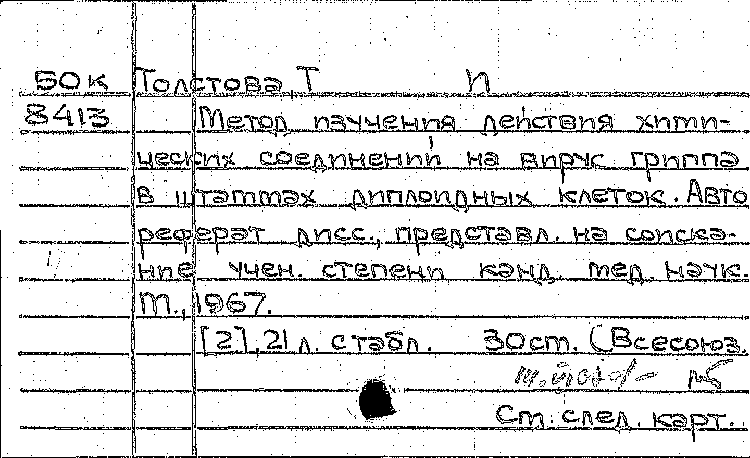 50к Толстова, Т П
8413 Метод изучения действия хими-
ческих соединений на вирус гриппа
в штаммах диплоидных клеток. Авто
реферат дисс., представл. на соиска-
ние учен. степени канд. мед. наук.
М., 1967.
[2], 21 л. с табл. 30 см. (Всесоюз.
См. след. карт.